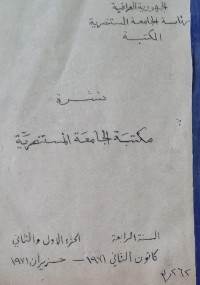 الجمهورية العراقية
رئاسة الجامعة المستنصرية
المكتبة
نشرة
مكتبة الجامعة المستنصرية
السنة الرابعة الجزء الاول والثاني
كانون الثاني ١٩٧١ - حزيران ١٩٧١